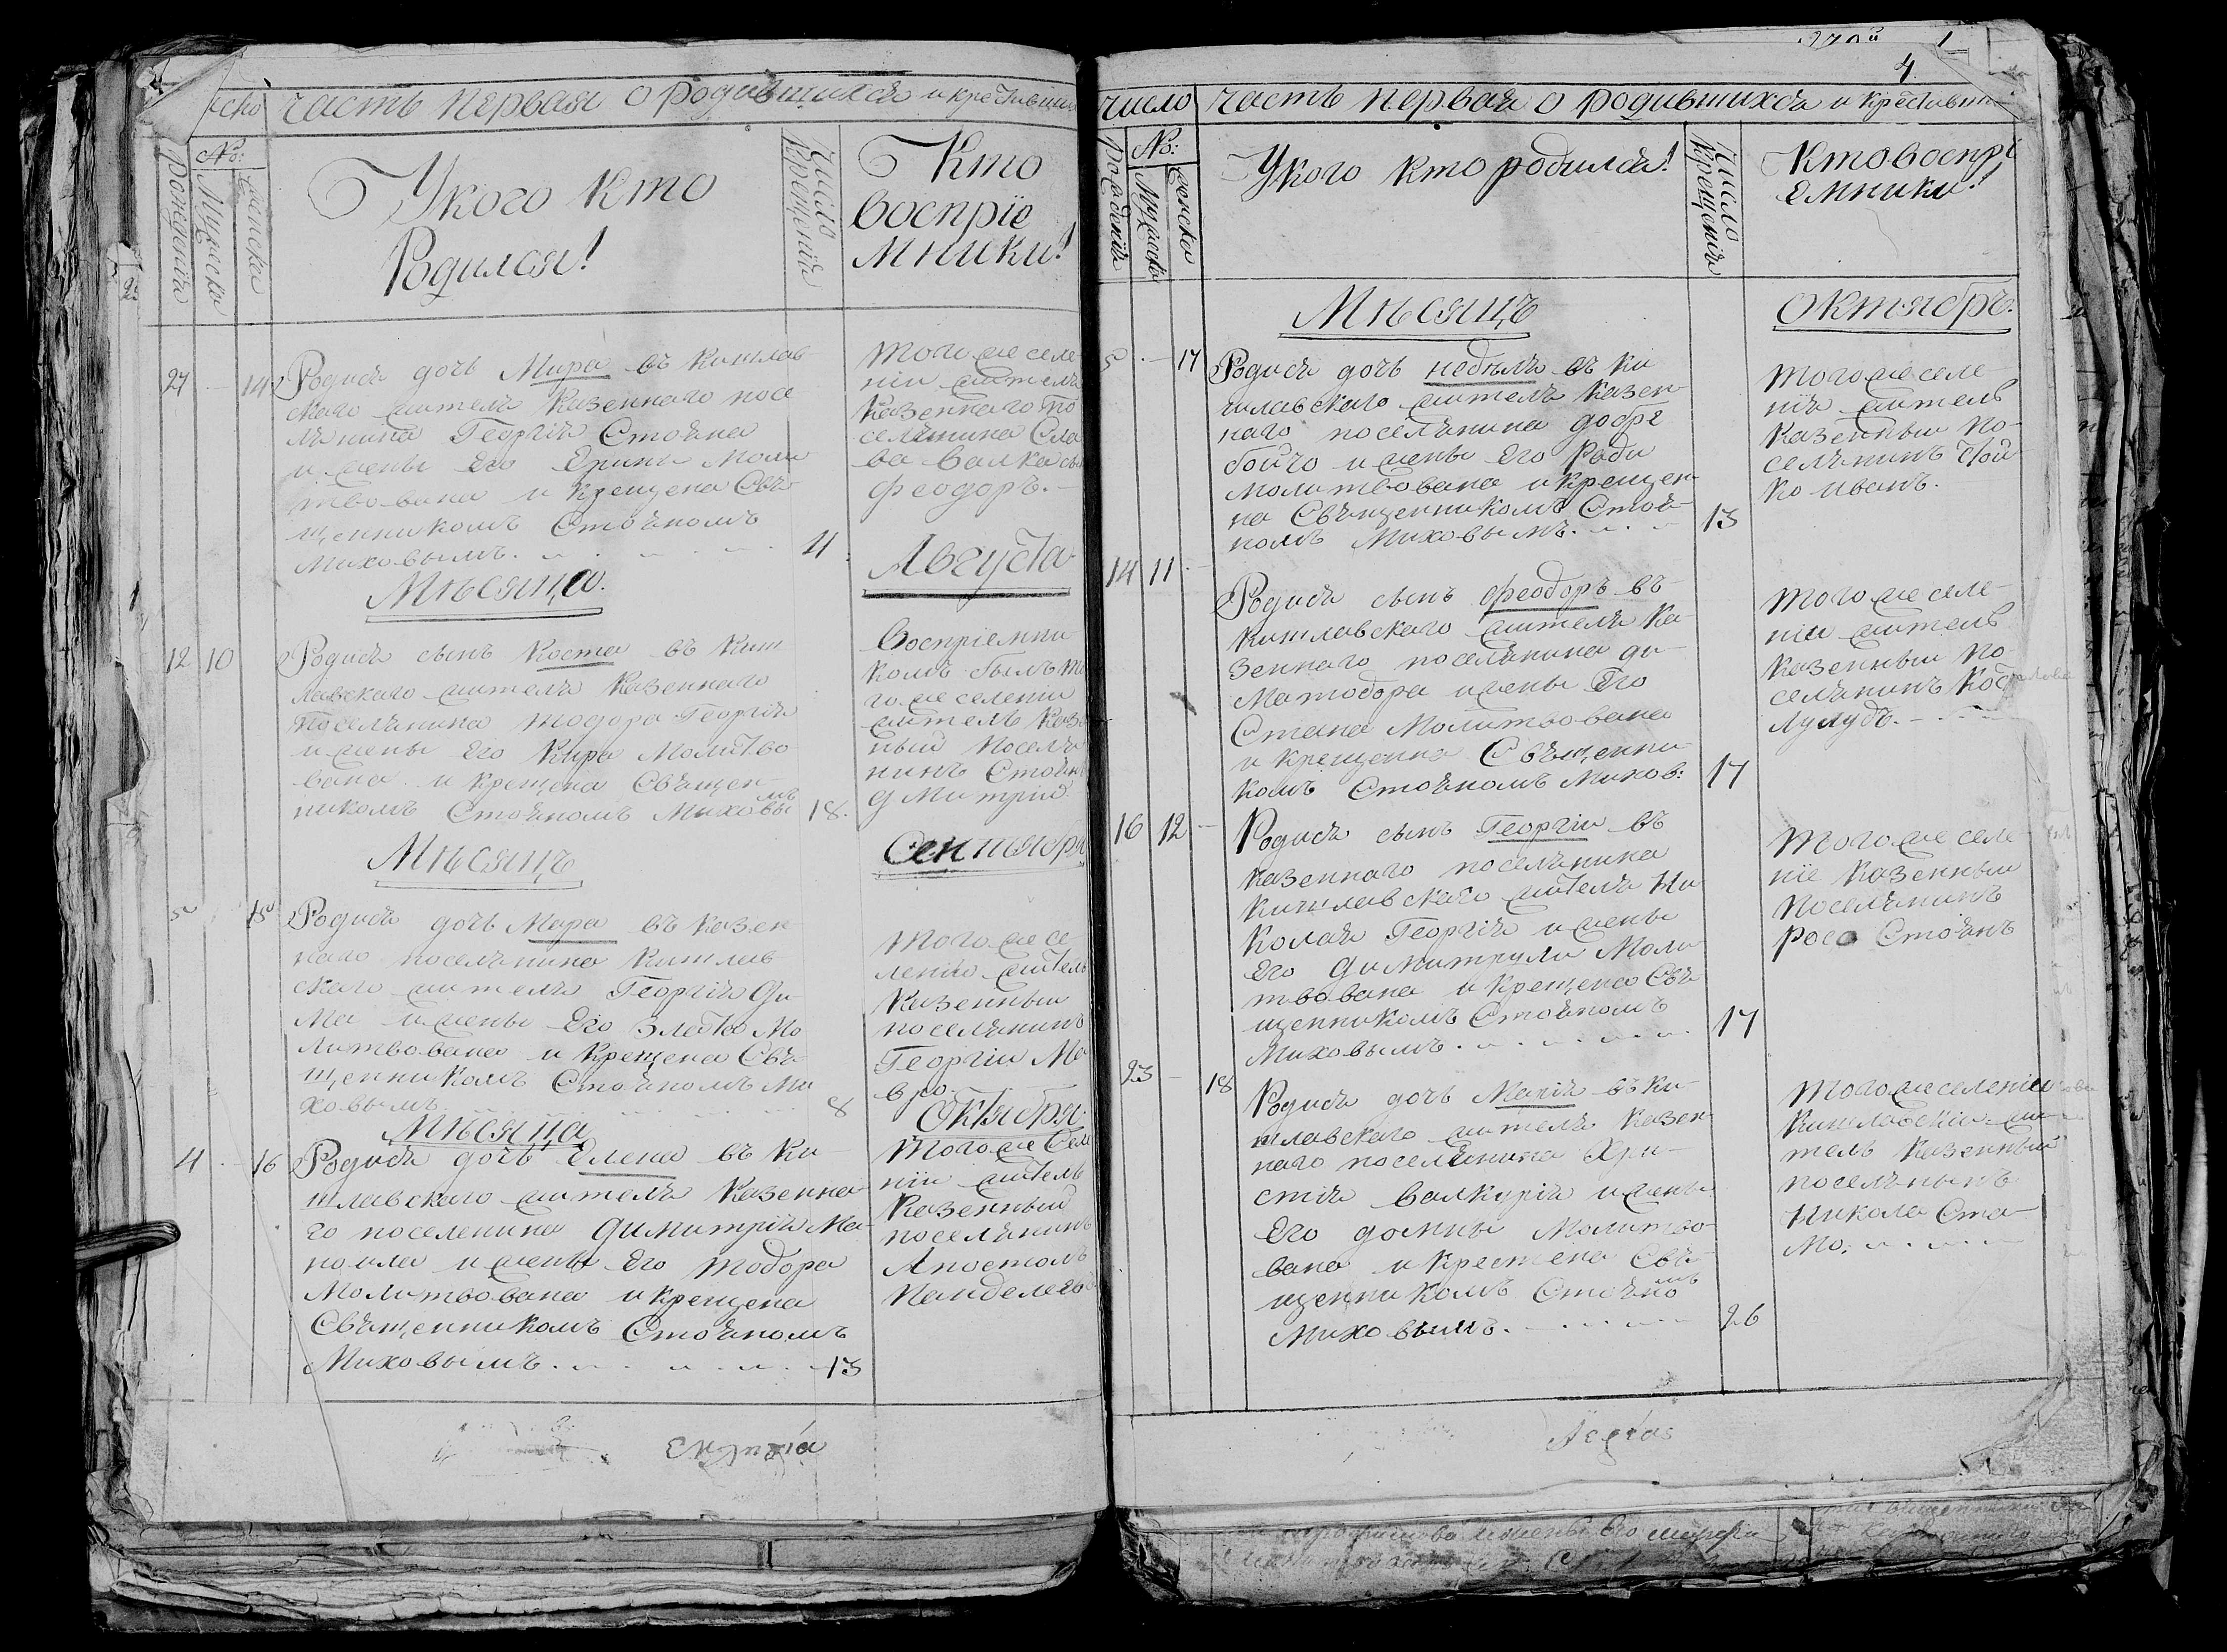 часть первая о родившихся и крестивши
No:
рожденія
Мужеска
женска
Укого кто
Родился!
Число
Крещенія
Кто
воспріе
мники!
27 14 Родися дочь Мира въ Кишлав
скаго жителя Казеннаго посе
лянина Георгія Стояна
и жены Его Ерины Моли
твована и Крещена Свя
щенникомъ Стояномъ
Миховымъ. 4
Тогоже селе
ніи жителя
Казеннаго По
селянина Сла
ва Валка сы
Феодоръ.
Мѣсяца. Августа
12 10 Родися сынъ Коста въ Киш
лавскаго жителя Казеннаго
Поселянина Тодора Георгія
и жены Его Кира Молитво
вана и Крещена Священ
никомъ Стояномъ Миховымъ 18.
Воспріемни
комъ былъ то
гоже селеніи
житель Казе
ный Поселя
нинъ Стоян
Дмитрій
Мѣсяцъ Сентября
5 15 Родися дочь Мара въ Казен
наго поселянина Кишлав
скаго жителя Георгія Ди
ма и жены Его Злетко Мо
литвована и Крещена Свя
щенникомъ Стояномъ Ми
ховымъ 8
Тогоже се
леніи житель
Казенный
поселянинъ
Георгіи Ма
вро.
Мѣсяца Октября
4 16 Родися дочь Елена въ Ки
шлавскаго жителя Казенна
го поселенина Димитрія Ма
ноила и жены Его Тодора
Молитвована и Крещена
Священникомъ Стояномъ
Миховымъ. 13
Тогоже Селе
ніи житель
Казенный
поселянинъ
Апостолъ
Панделего
4
число часть первая о родившихся и крестивши
No:
рожденія
Мужеска
женска
Укого кто родился!
Число
Крещенія
Кто воспрі
емники!
Мѣсяцъ октябръ.
5 17 Родися дочь недѣля въ Ки
шлавскаго жителя Казен
наго поселянина добре
бойчо и жены Его Ради
молитвована и крещен
на Священникомъ Стоя
номъ Миховымъ. 13
Тогоже селе
ніи житель
Казенныи По
селянинъ Стой
ко Иванъ.
14 11 Родися сынъ Феодоръ въ
Кишлавскаго жителя Ка
зеннаго поселянина ди
Матодора и жены Его
Стана Молитвована
и крещенна Священни
комъ Стояномъ Михов: 17
Тогоже селе
ніи житель
Казенныи По
селянинъ Кос
Лулудъ.
16 12 Родися сынъ Георгіи въ
Казеннаго поселянина
Кишлавскаго жителя Ни
Колая Георгія и жены
Его Димитрули Моли
твована и крещена Свя
щенникомъ Стояномъ
Миховымъ. 17
Тогоже селе
ніе Казенныи
Поселянинъ
Росо Стоянъ
23 18 Родися дочь Марія въ Ки
шлавскаго жителя Казен
наго поселянина Хри
стія Валкурія и жены
Его домны Молитво
вана и Крестена Свя
щенникомъ Стояномъ
Миховымъ. 26
Тогоже селеніи
Кишлавскіи жи
тель Казенный
поселянынъ
Никола Ста
Мо: